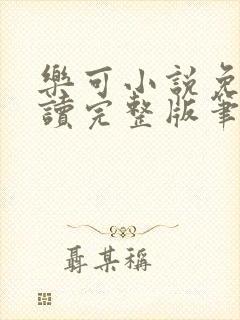 樂可小說免
讀完整版筆
聶某稱